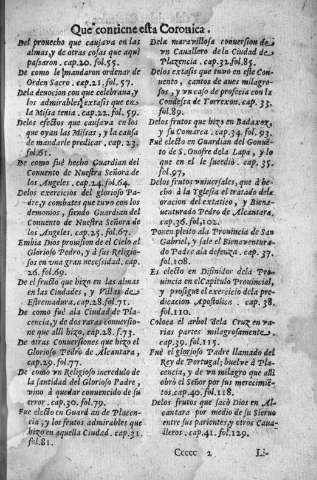 Que contiene esta Coronica.
Del prouecho que causava en las
almas, y de otras cosas que aqui
passaron. cap.20. fol.55.
De como le mandaron ordenar de
Orden Sacro. cap.21. fol. 57.
De la deuocion con que celebrava, y
los admirables extasis que en
la Missa tenia. cap.22. fol.59.
Delos efectos que causava en los
que oyan las Missas, y la causa
de mandarle predicar. cap. 23.
fol.61.
De como fuè hecho Guardian del
Conuento de Nuestra Señora de
los Angeles. cap.24. fol.64.
De los exercicios del glorioso Pa-
dre, y combates que tuvo con los
demonios, siendo Guardian del
Conuento de Nuestra Señora de
los Angeles. cap.25. fol.67.
Embia Dios prouision de el Cielo al
Glorioso Pedro, y à sus Religio-
sos en vna gran necessidad. cap.
26. fol.69.
De el fructo que hizo en las almas
en las Ciudades, y Villas de
Estremadura. cap.28. fol.71.
De como fuè ala Ciudad de Pla-
cencia, y de dos raras conuersio-
nes que alli hizo, cap.28. f.73.
De otras Conuersiones que hizo el
Glorioso Pedro de Alcantara,
cap.29. fol.77.
De como vn Religioso incredulo de
la santidad del Glorioso Padre,
vino à quedar conuencido de su
error. cap.30. fol.79.
Fue electo en Guardian de Placen-
cia; y los frutos admirables que
hizo en aquella Ciudad. cap.31.
fol.81.
Dela maravillosa conuersion de
vn Cavallero de la Ciudad de
Plazencia. cap.32. fol.85.
Delos extasis que tuvo en este Con-
uento, cantos de aues milagro-
sos, y vn caso de profecia con la
Condesa de Torrexon. cap. 33.
fol.89.
Delos frutos que hizo en Badaxoz,
y su Comarca. cap.34. fol. 93.
Fuè electo en Guardian del Conuē-
to de S. Onofre dela Lapa, y lo
que en el le sucediò. cap. 35.
fol.97,
Delos frutos vniuersales, que à he-
cho à la Iglesia el tratado dela
oracion del extatico, y Bienav-
enturado Pedro de Alcantara.
cap.36. fol.102.
Ponen pleito ala Prouincia de San
Gabriel, y sale el Bienaventura-
do Padre ala defensa. cap. 37.
fol.108.
Es electo en Difinidor dela Pro-
uincia en el Capitulo Prouincial,
y prosigue el exercicio dela pre-
dicacion Apostolica. cap. 38.
fol.110.
Coloca el arbol dela Cruz en va-
rias partes milagrosamente.
cap.39. fol.115.
Fuè el glorioso Padre llamado del
Rey de Portugal; buelve à Pla-
cencia, y de vn milagro que alli
obrò el Señor por sus merecimie-
tos. cap.40. fol.118.
Delos frutos que sacò Dios en Al-
cantara por medio de su Siervo
entre sus parientes, y otros Caua-
lleros. cap.41. fol.129.
Ccccc 2 Li-